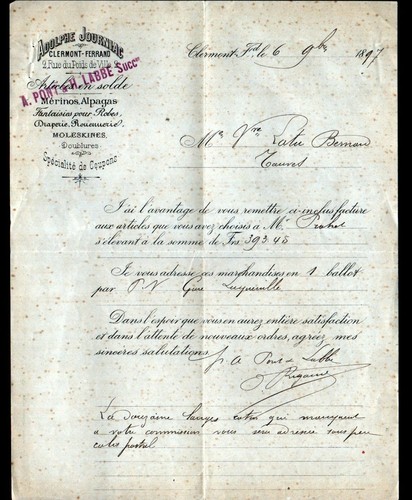 ADOLPHE JOURNIAC
CLERMONT-FERRAND
2, Rue du Poids de Ville, 2
Articles en solde
A. PONT & H. LABBÉ Succrs
Mérinos, Alpagas
Fantaisies pour Robes,
Draperie, Rouennerie
MOLESKINES,
Doublures
Spécialité de Coupons
Clermont-Fd, le 6 9bre 1897
Mr Vve Bernard
Tauves
J'ai l'avantage de vous remettre ci-inclus facture
aux articles que vous avez choisis a Mr
s'élevant à la somme de Frs 393.45
Je vous adresse ces marchandises en 1 ballot
par P V Gare Laqueuille
Dans l'espoir que vous en aurez entière satisfaction
et dans l'attente de nouveaux ordres, agréez mes
sincères salutations.
A Pont & Labbé
La douzaine coton qui manquent
a votre commission vous sera adressé sous peu
colis postal